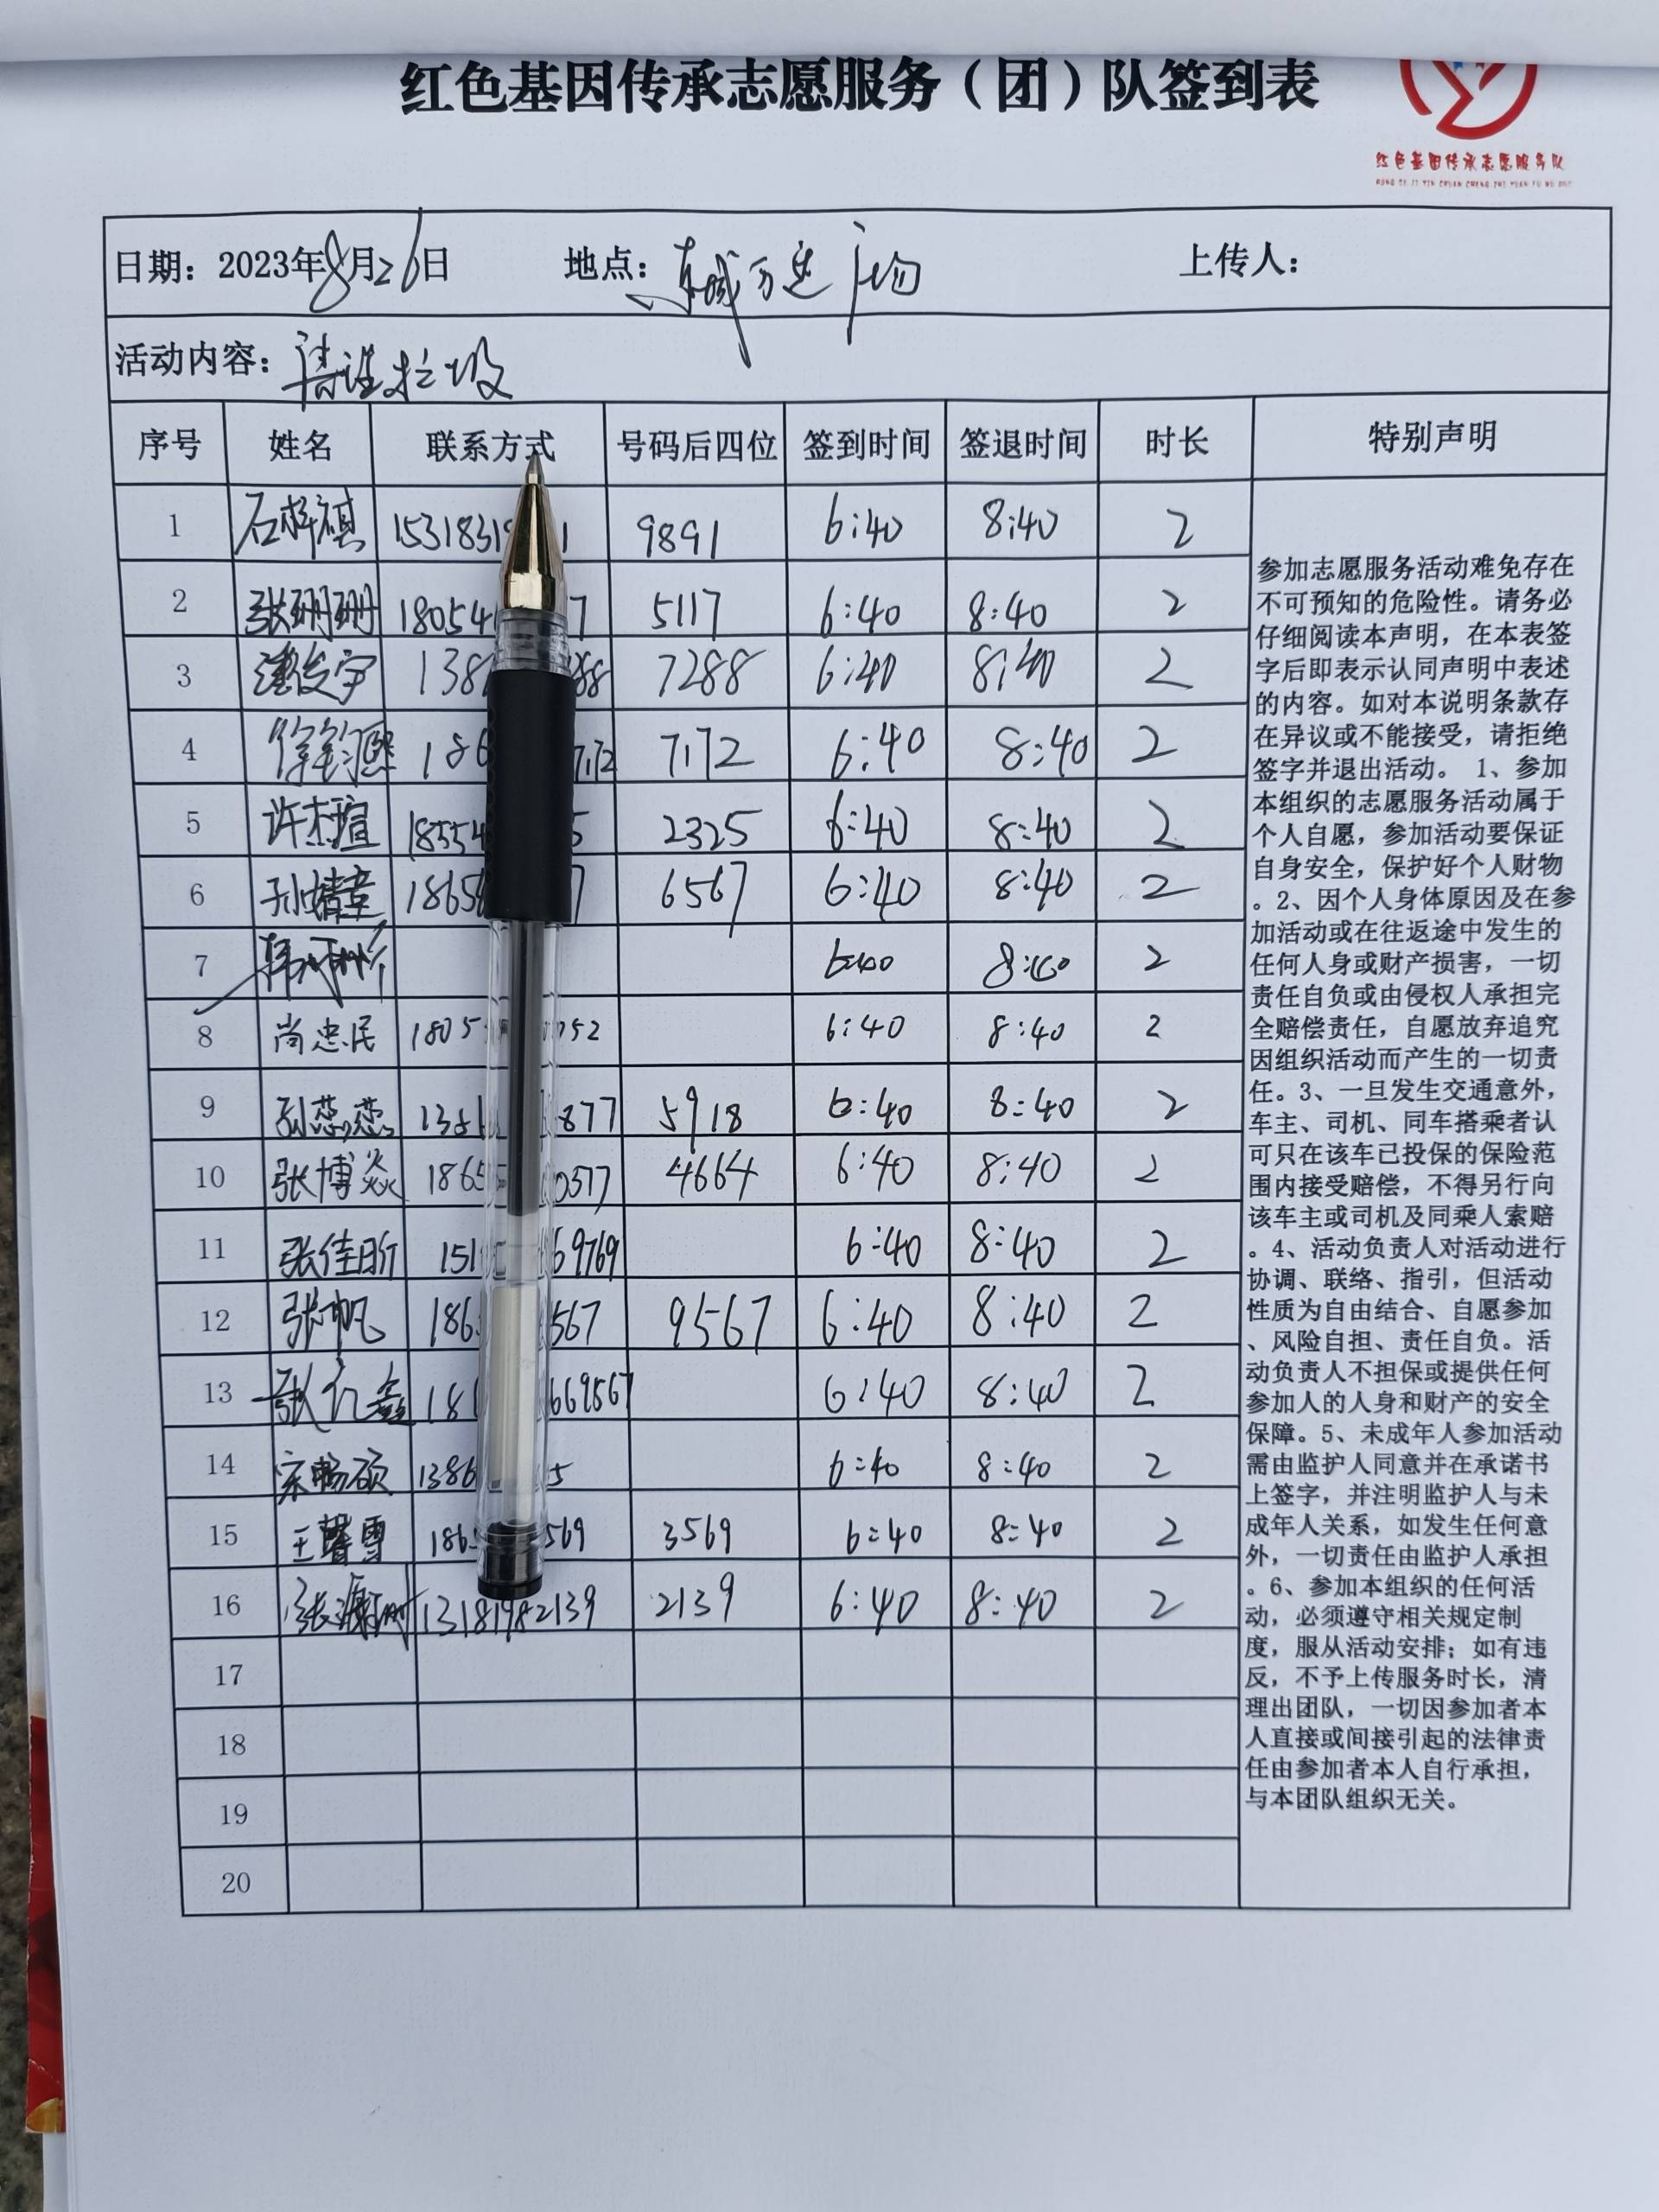 红色基因传承志愿服务（团）队签到表
红色基因传承志愿服务队
日期：2023年8月26日 地点： 上传人：
活动内容：清理垃圾
序号 姓名 联系方式 号码后四位 签到时间 签退时间 时长 特别声明
1 石梓祺 9891 6:40 8:40 2
2 张珊珊 5117 6:40 8:40 2
3 7288 6:40 8:40 2
4 7172 6:40 8:40 2
5 2325 6:40 8:40 2
6 孙婧童 6567 6:40 8:40 2
7 6:40 8:40 2
8 尚忠民 6:40 8:40 2
9 孙蕊蕊 5918 6:40 8:40 2
10 张博焱 4664 6:40 8:40 2
11 张佳昕 6:40 8:40 2
12 张帆 9567 6:40 8:40 2
13 6:40 8:40 2
14 宋畅硕 6:40 8:40 2
15 王馨雪 3569 6:40 8:40 2
16 13181982139 2139 6:40 8:40 2
17
18
19
20
参加志愿服务活动难免存在
不可预知的危险性。请务必
仔细阅读本声明，在本表签
字后即表示认同声明中表述
的内容。如对本说明条款存
在异议或不能接受，请拒绝
签字并退出活动。 1、参加
本组织的志愿服务活动属于
个人自愿，参加活动要保证
自身安全，保护好个人财物
。2、因个人身体原因及在参
加活动或在往返途中发生的
任何人身或财产损害，一切
责任自负或由侵权人承担完
全赔偿责任，自愿放弃追究
因组织活动而产生的一切责
任。3、一旦发生交通意外，
车主、司机、同车搭乘者认
可只在该车已投保的保险范
围内接受赔偿，不得另行向
该车主或司机及同乘人索赔
。4、活动负责人对活动进行
协调、联络、指引，但活动
性质为自由结合、自愿参加
、风险自担、责任自负。活
动负责人不担保或提供任何
参加人的人身和财产的安全
保障。5、未成年人参加活动
需由监护人同意并在承诺书
上签字，并注明监护人与未
成年人关系，如发生任何意
外，一切责任由监护人承担
。6、参加本组织的任何活
动，必须遵守相关规定制
度，服从活动安排；如有违
反，不予上传服务时长，清
理出团队，一切因参加者本
人直接或间接引起的法律责
任由参加者本人自行承担，
与本团队组织无关。